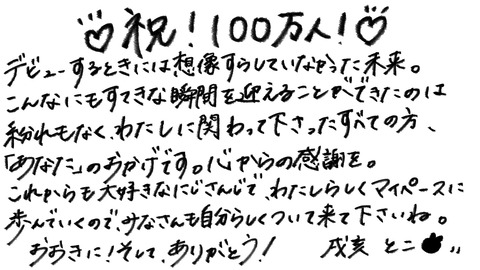 祝!100万人!
デビューするときには想像すらしていなかった未来。
こんなにもすてきな瞬間を迎えることができたのは
紛れもなく、わたしに関わって下さったすべての方、
「あなた」のおかげです。心からの感謝を。
これからも大好きなにじさんじで、わたしらしくマイペースに
歩んでいくので、みなさんも自分らしくついて来て下さいね。
おおきに!そして、ありがとう! 戌亥 とこ